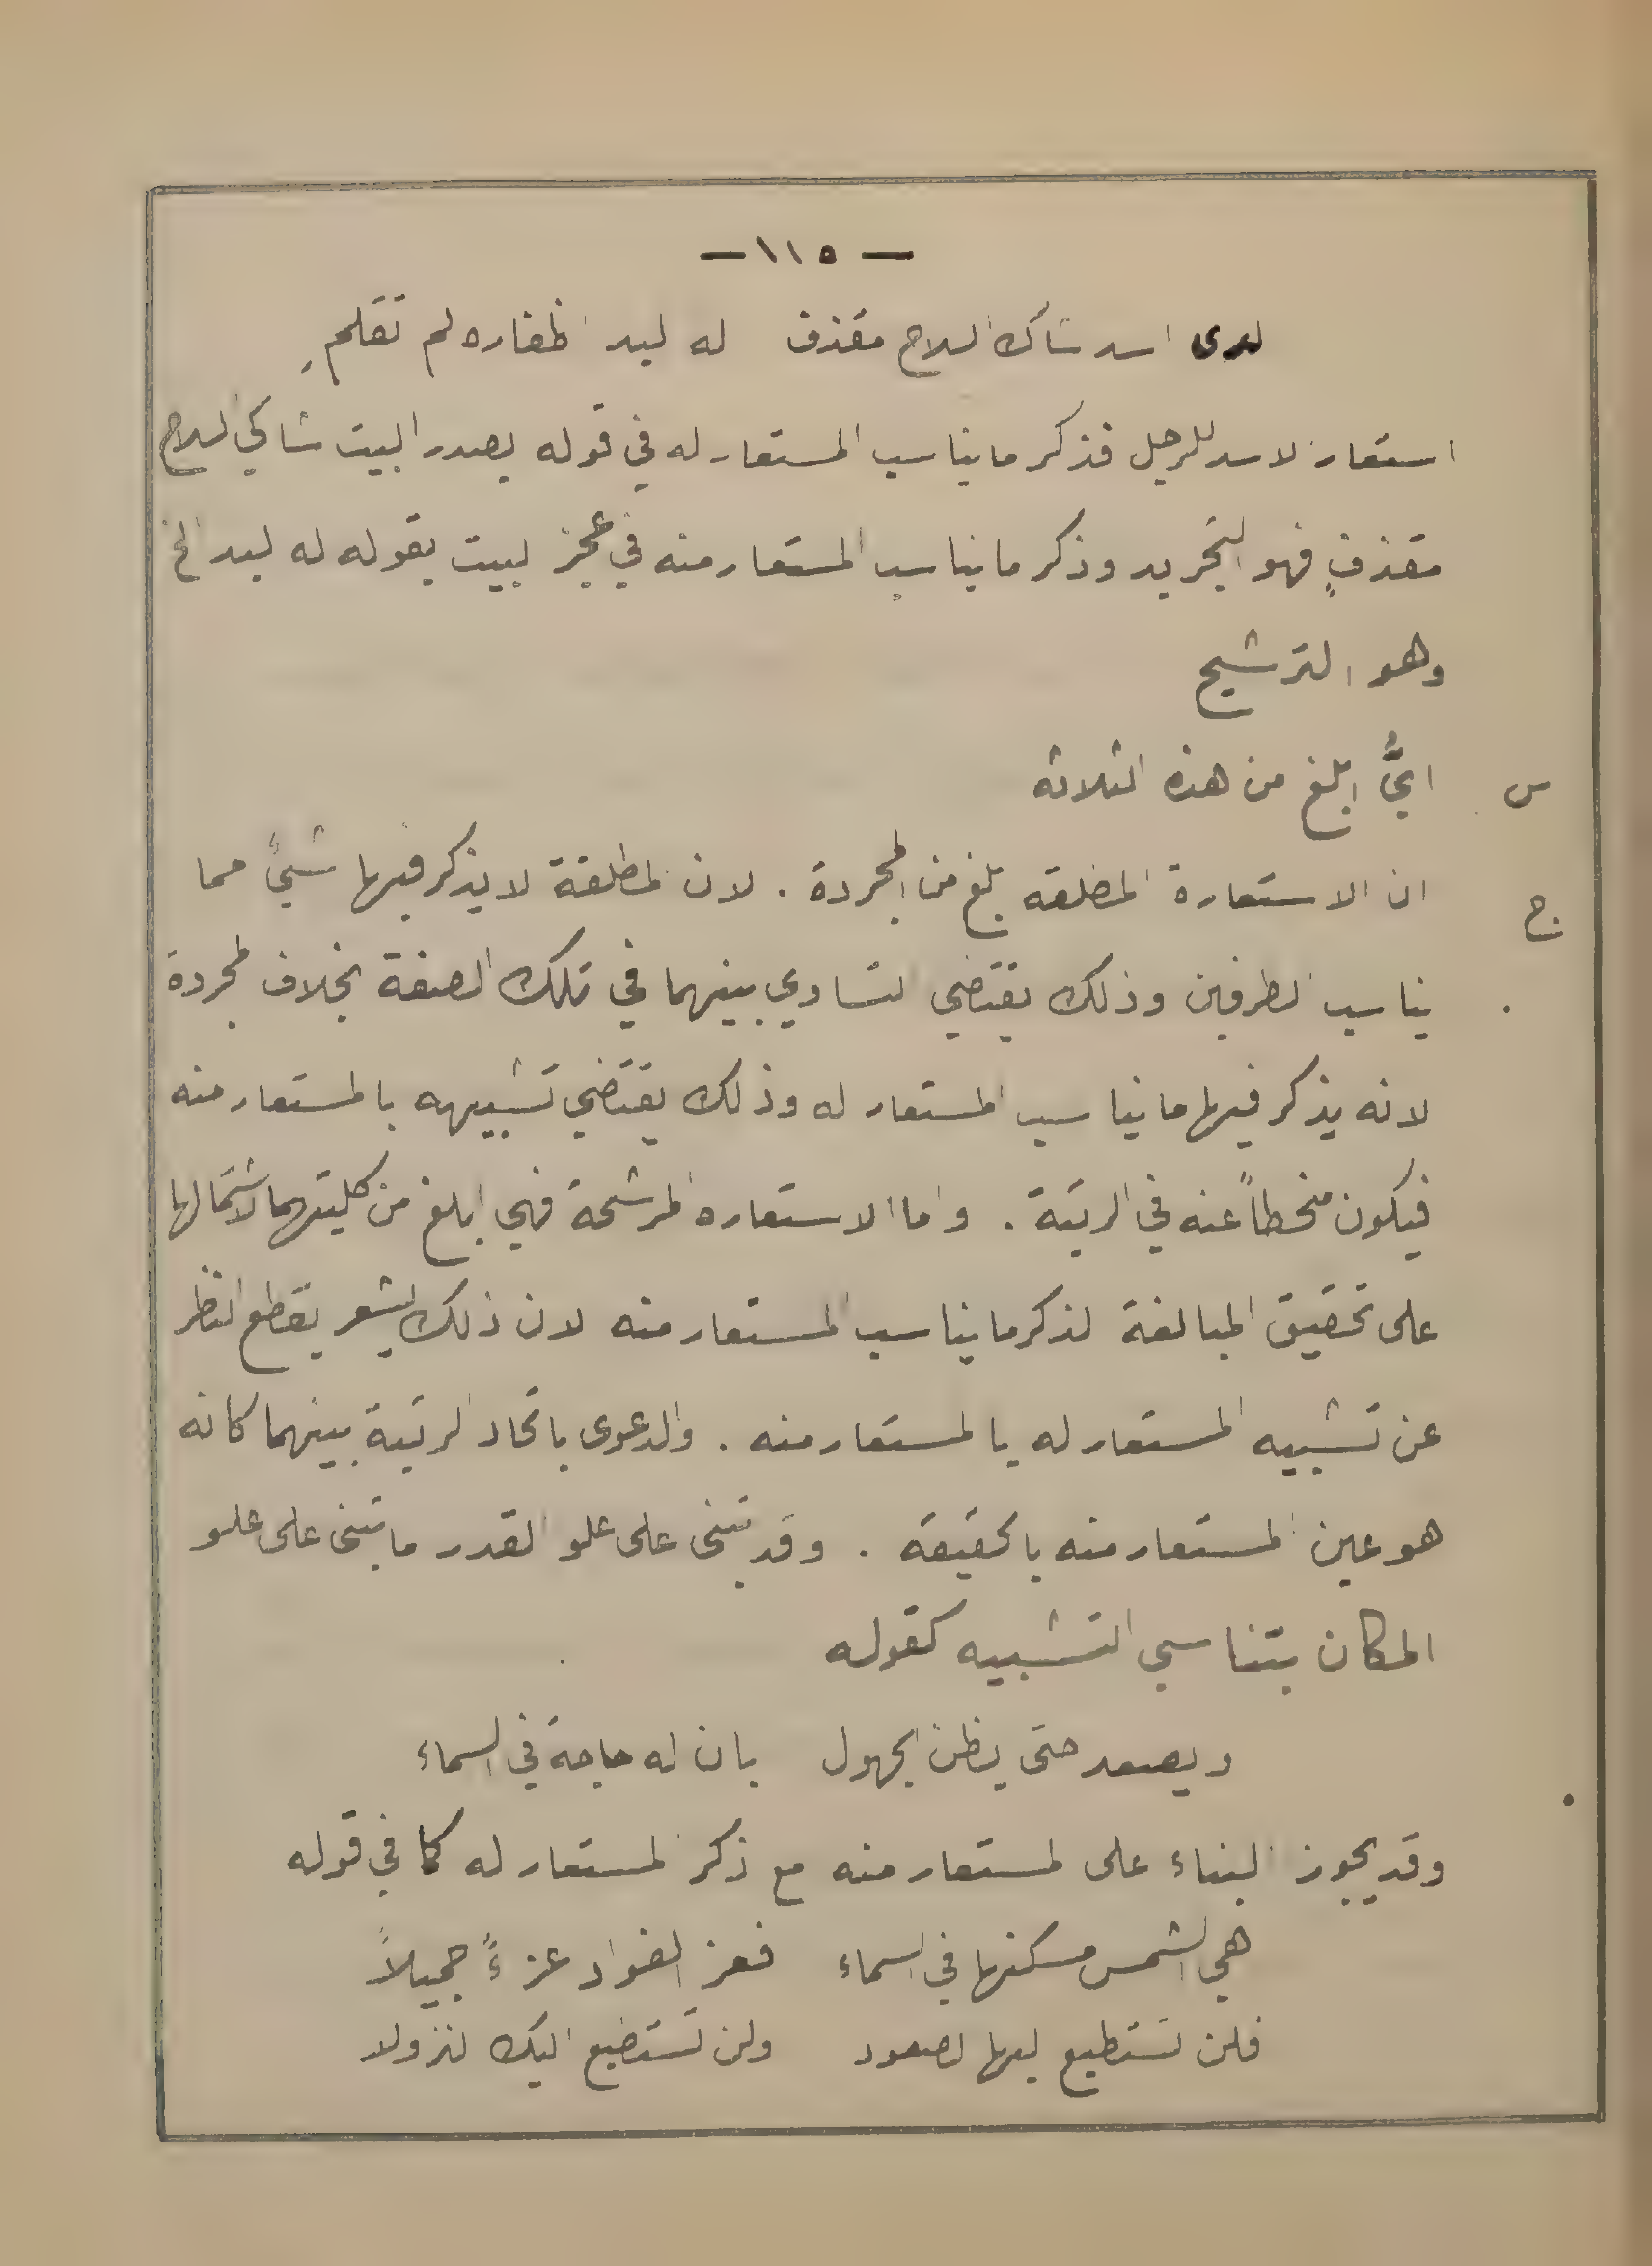 — ١١٥ —
لدى اسد شاك السلاح مقذف له لبد اظفاره لم تقلمِ
استعار الاسد للرجل فذكر ما يناسب المستعار له في قوله بصدر البيت شاكي السلاح
مقذفٍ فهو التجريد وذكر ما يناسب المستعار منه في عجز البيت بقوله له لبد الخ
وهو الترشيح
س ايُّ ابلغ من هذه الثلاثه
ج ان الاستعارة المطلقه ابلغ من المجردة . لان المطلقة لا يذكر فيها شيءٌ مما
يناسب الطرفين وذلك يقتضي التساوي بينهما في تلك الصفة بخلاف المجردة
لانه يذكر فيها ما يناسب المستعار له وذلك يقتضي تشبيهه بالمستعار منه
فيكون منحطاً عنه في الرتبة . واما الاستعاره المرشحة فهي ابلغ من كليتهما لاشتمالها
على تحقيق المبالغة لذكر ما يناسب المستعار منه لان ذلك يشعر بقطع النظر
عن تشبيه المستعار له بالمستعار منه . والدعوى باتحاد الرتبة بينهما كانه
هو عين المستعار منه بالحقيقة . وقد تبنى على علو القدر ما تبنى على علو
المكان بتناسي التشبيه كقوله
ويصعد حتى يظن الجهول بان له حاجة في السماء
وقد يجوز البناء على المستعار منه مع ذكر المستعار له كما في قوله
هي الشمس مسكنها في السماء فعز الفواد عزءً جميلاً
فلن تستطيع اليها الصعود ولن تستضيع اليك النزولا